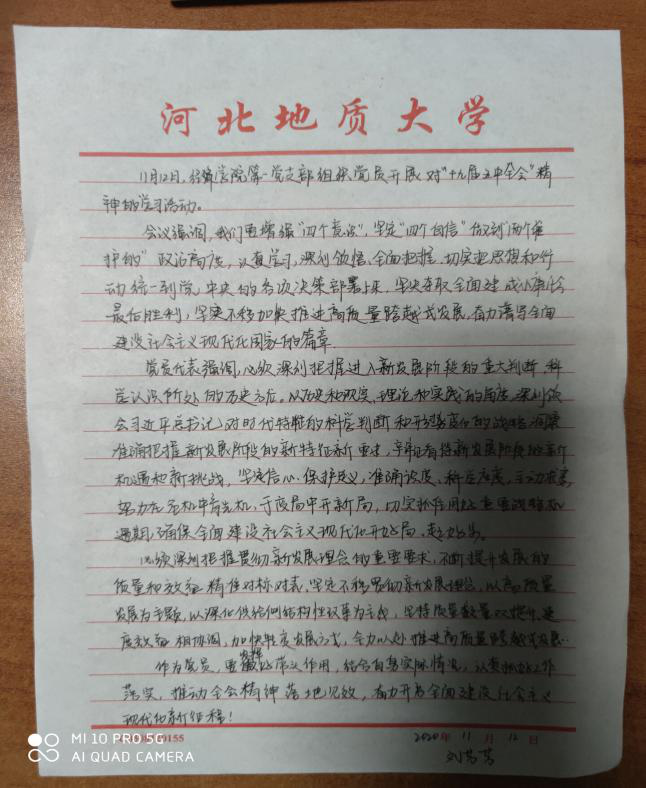 河北地质大学
11月12日，经管学院第一党支部组织党员开展对"十九届五中全会"精
神的学习活动。
会议强调，我们要增强"四个意识"，坚定"四个自信"做到"两个维
护的"政治高度，认真学习，深刻领悟，全面把握，切实把思想和行
动统一到党中央的各项决策部署上来，坚决夺取全面建成小康社会
最后胜利，坚定不移加快推进高质量跨越式发展，奋力谱写全面
建设社会主义现代化国家的篇章
党员代表强调，必须深刻把握进入新发展阶段的重大判断，科
学认识所处的历史方位，从历史和现实，理论和实践的角度，深刻领
会习近平总书记对时代特征的科学判断和形势变化的战略洞察
准确把握新发展阶段的新特征新要求，辛年看待新发展阶段的新
机遇和新挑战，坚定信心，保护定义，准确识变，科学应变，主动求变，
努力在危机中育先机，于变局中开新局，切实抓住用好重要战略机
遇期，确保全面建设社会主义现代化开好局，起好步。
必须深刻把握贯彻新发展理念的重要要求，不断提升发展的
质量和效益 精准对标对表，坚定不移贯彻新发展理念，以高质量
发展为主题，以深化供给侧结构性改革为主线，坚持质量数量双提升、速
度效益相协调，加快转变发展方式，全力以赴推进高质量跨越式发展..
作为党员，要发挥好带头作用，结合自身实际情况，认真抓好工作
落实，推动全会精神落地见效，奋力开启全面建设社会主义
现代化新征程！
0155
2020年11月12日
MI 10 PRO 5G
AI QUAD CAMERA